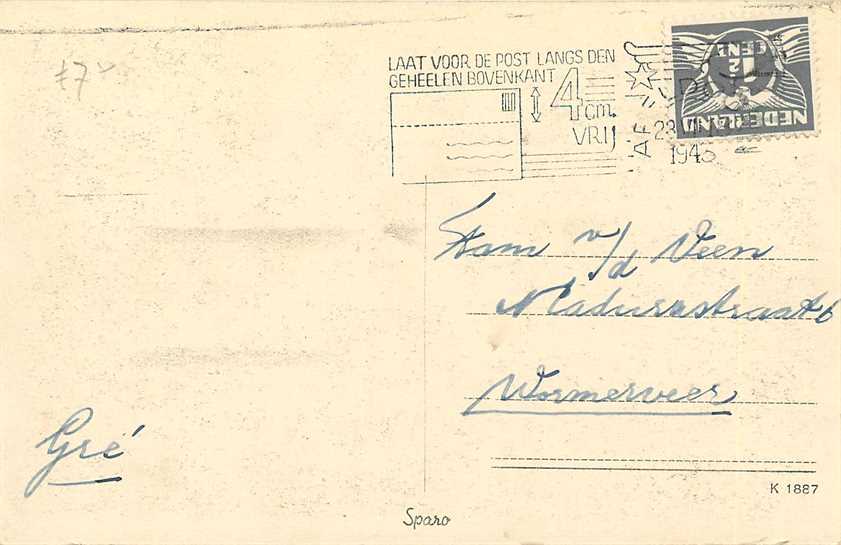 LAAT VOOR DE POST LANGS DEN
GEHEELEN BOVENKANT
4 cm.
VRIJ
1943
NEDERLAND
1/2
CENT
Fam v/d Veen
Madurastraat 6
Wormerveer
Gré
K 1887
Sparo